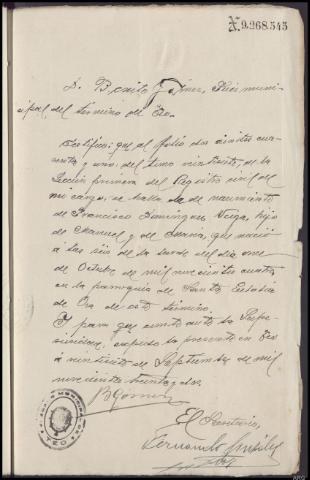 X.9.268.545
D. Benito Gómez, Juez muni-
cipal del término de Teo.
Certifico: que al folio dos cientos cua-
renta y uno, del tomo veintisiete, de la
Sección primera del Registro civil de
mi cargo, se halla la de nacimiento
de Francisco Domínguez Veiga, hijo
de Manuel y de María, que nació
a las seis de la tarde del día once
de Octubre de mil novecientos cuatro
en la parroquia de Santa Eulalia
de Oza de este término.
Y para que conste ante la Supe-
rioridad, expido la presente en Teo
á veintisiete de Septiembre de mil
novecientos treinta y dos.
B Gómez
El Secretario,
Fernando
TEO